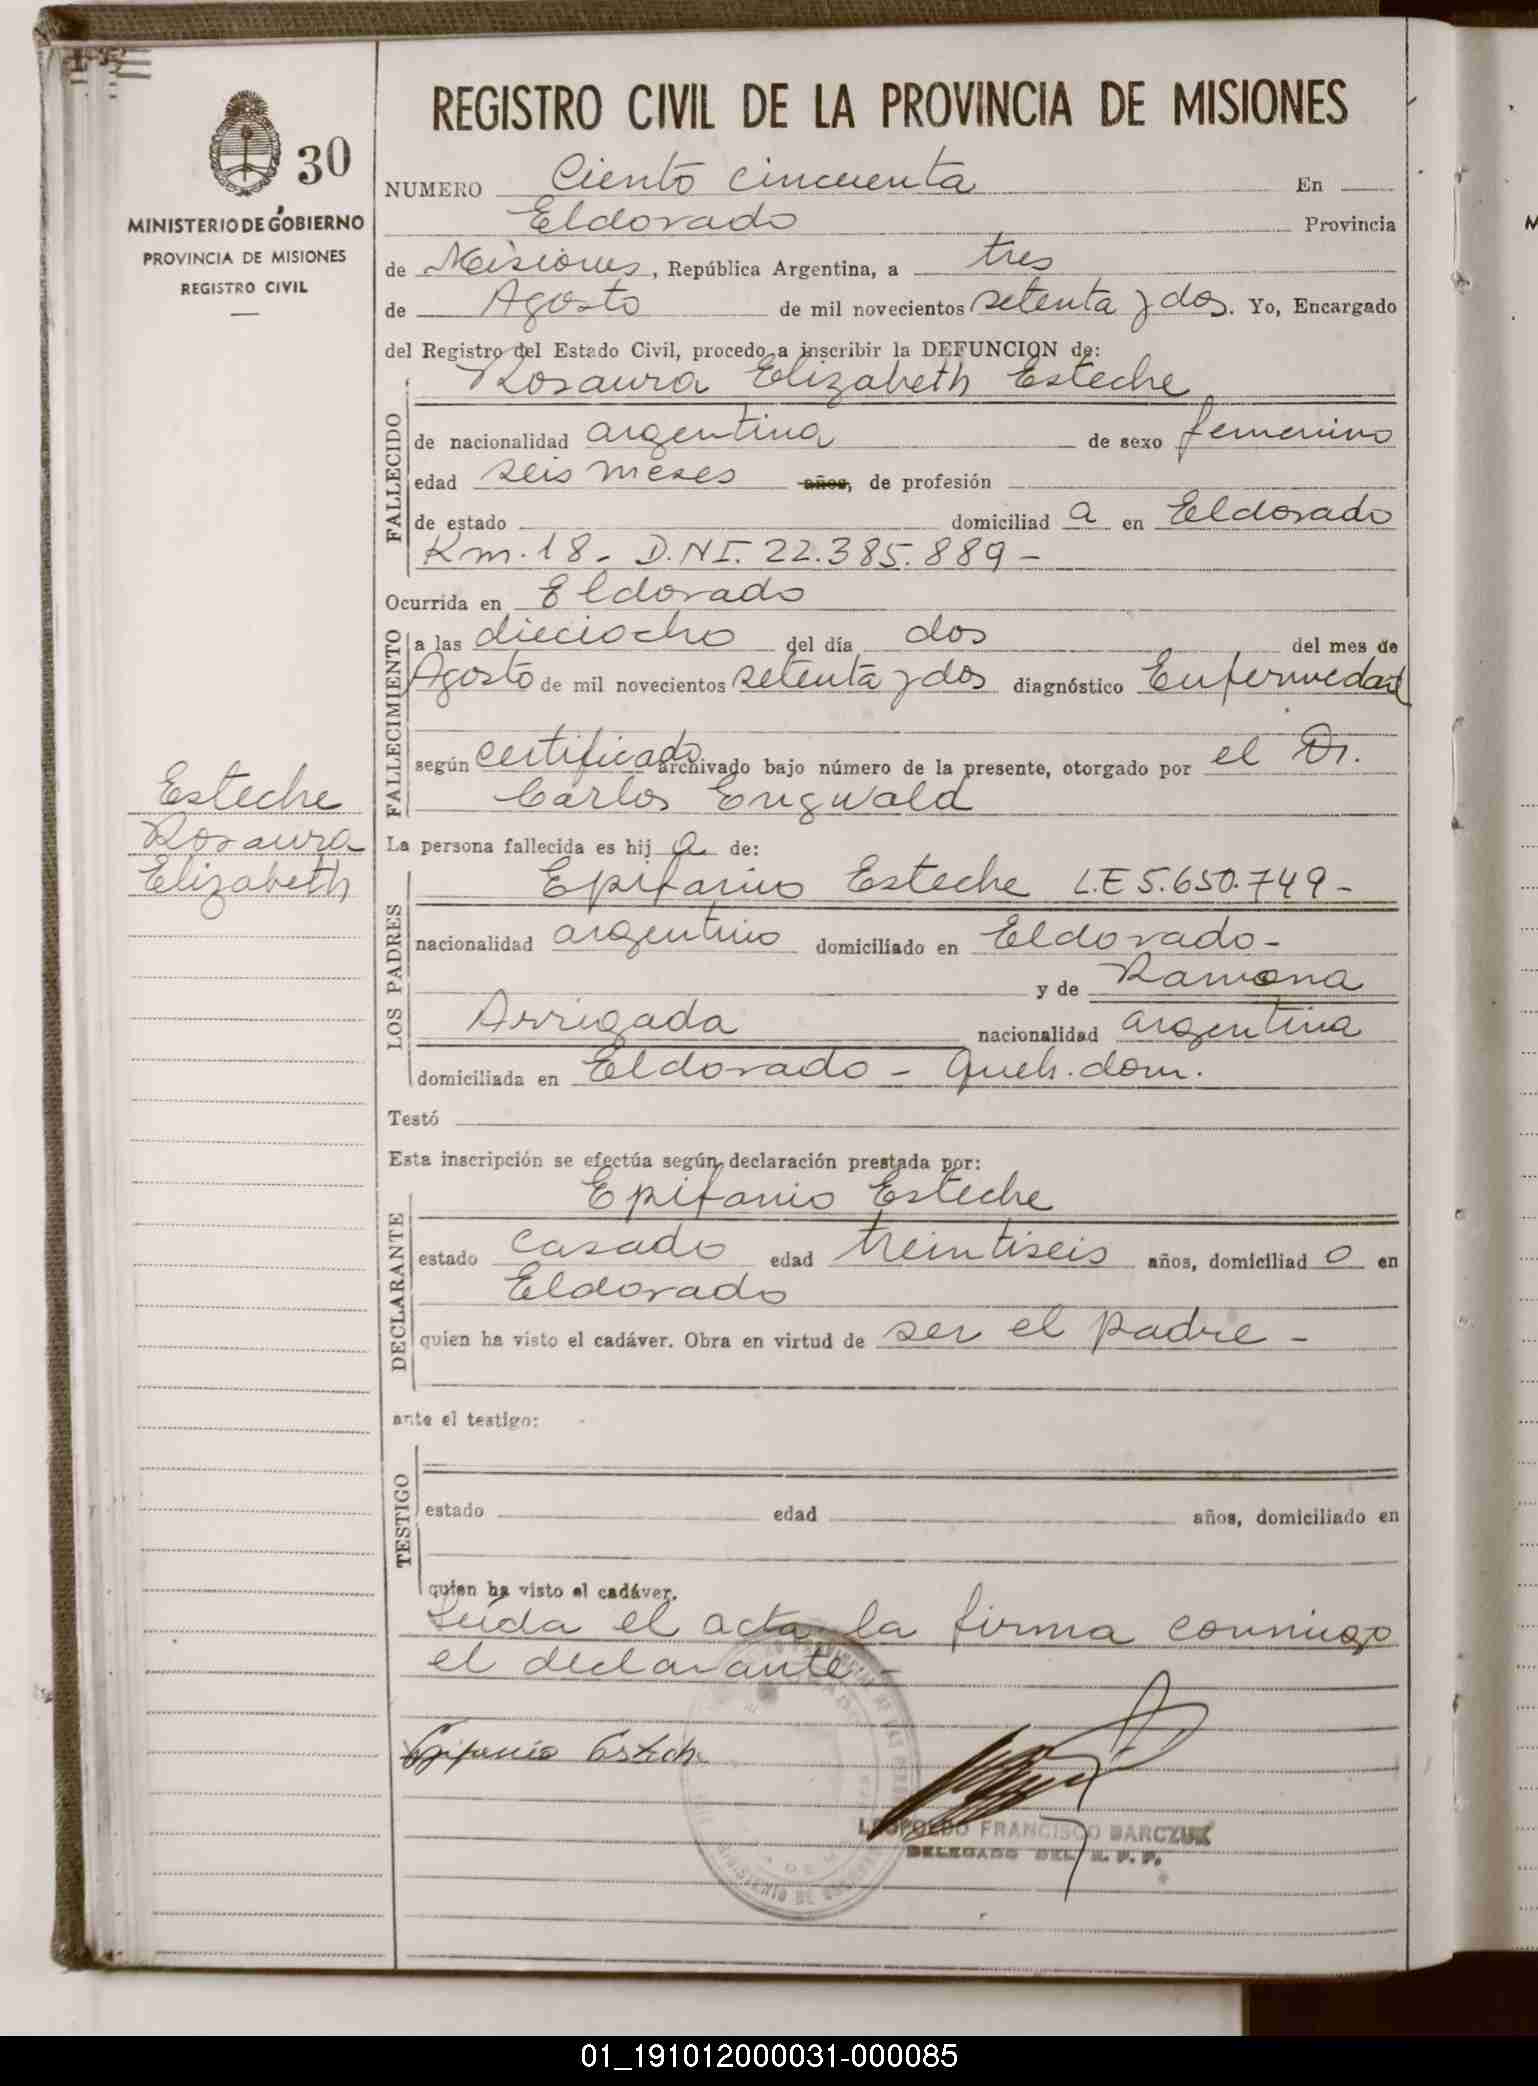 REGISTRO CIVIL DE LA PROVINCIA DE MISIONES
30
MINISTERIO DE GOBIERNO
PROVINCIA DE MISIONES
REGISTRO CIVIL
NUMERO Ciento cincuenta En
Eldorado Provincia
de Misiones, República Argentina, a tres
de Agosto de mil novecientos setenta y dos. Yo, Encargado
del Registro del Estado Civil, procedo a inscribir la DEFUNCION de:
Rosaura Elizabeth Esteche
FALLECIDO
de nacionalidad argentina de sexo femenino
edad seis meses años, de profesión
de estado domiciliad a en Eldorado
Km. 18 - D.N.I. 22.385.889 -
Ocurrida en Eldorado
FALLECIMIENTO
a las dieciocho del día dos del mes de
Agosto de mil novecientos setenta y dos diagnóstico Enfermedad
según certificado archivado bajo número de la presente, otorgado por el Dr.
Carlos Engwald
Esteche
Rosaura
Elizabeth
La persona fallecida es hij a de:
LOS PADRES
Epifanio Esteche L.E 5.650.749 -
nacionalidad argentino domiciliado en Eldorado -
y de Ramona
Arrigada nacionalidad argentina
domiciliada en Eldorado - Queh. dom.
Testó
Esta inscripción se efectúa según declaración prestada por:
DECLARANTE
Epifanio Esteche
estado casado edad treintiseis años, domiciliad o en
Eldorado
quien ha visto el cadáver. Obra en virtud de ser el padre -
ante el testigo:
TESTIGO
estado edad años, domiciliado en
quien ha visto el cadáver.
Leída el acta la firma conmigo
el declarante -
Epifanio Estech
LEOPOLDO FRANCISCO BARCZUK
DELEGADO DEL R. P. P.
01_191012000031-000085